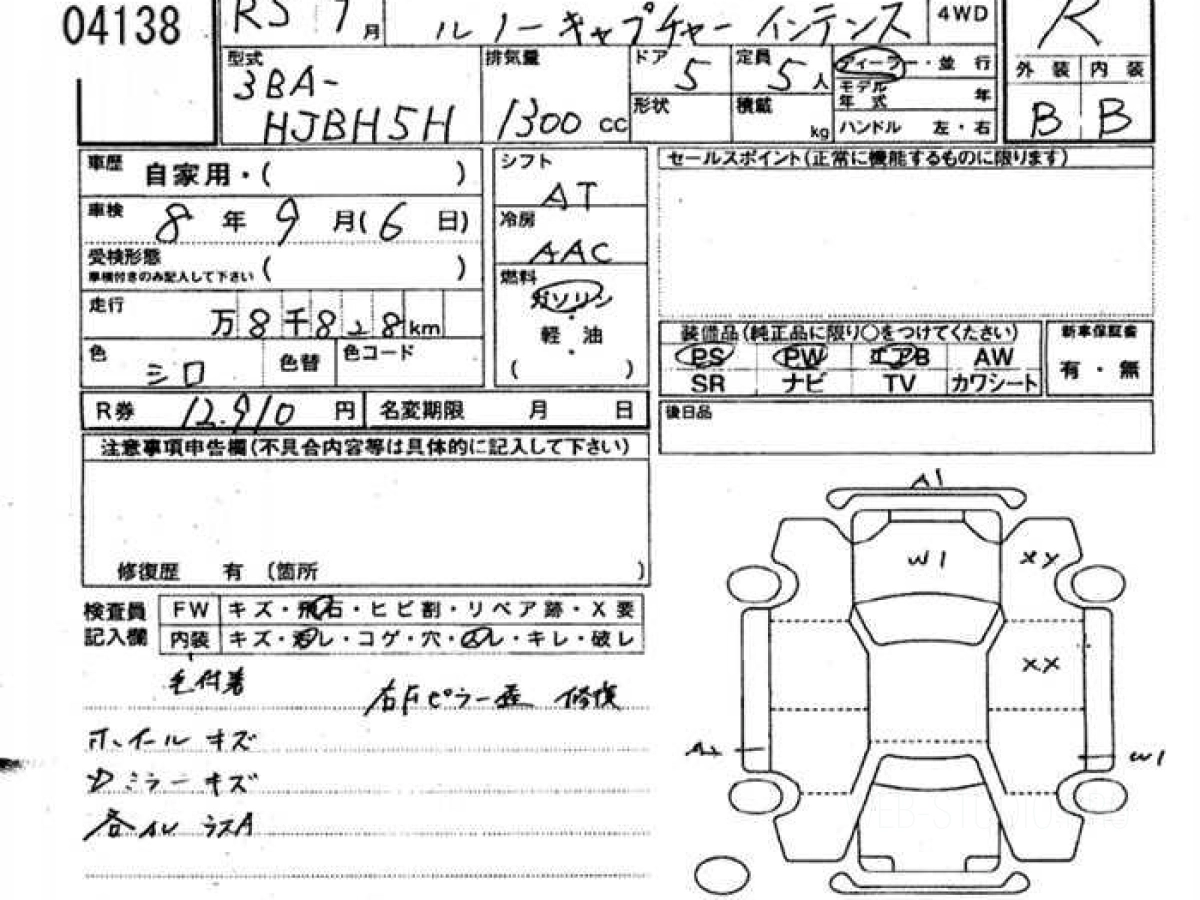 04138
R5 9月 ルノーキャプチャー インテンス 4WD R
型式 3BA-HJBH5H
排気量 1300 cc
ドア 5
定員 5人
形状
積載 kg
ディーラー・並行
モデル年式 年
ハンドル 左・右
外装 内装
B B
車歴 自家用・( )
車検 8年 9月(6日)
受検形態 車検付きのみ記入して下さい ( )
走行 万8千828km
色 シロ 色替 色コード
シフト AT
冷房 AAC
燃料 ガソリン・軽油・( )
セールスポイント(正常に機能するものに限ります)
装備品(純正品に限り○をつけてください)
PS PW エアB AW
SR ナビ TV カワシート
新車保証書 有・無
R券 12,910円 名変期限 月 日
後日品
注意事項申告欄(不具合内容等は具体的に記入して下さい)
修復歴 有 〔箇所 )
検査員記入欄
FW キズ・飛石・ヒビ割・リペア跡・X要
内装 キズ・汚レ・コゲ・穴・スレ・キレ・破レ
毛付着
右Fピラー歪 修復
ホイール キズ
ミラーキズ
A1
W1
XY
XX
W1